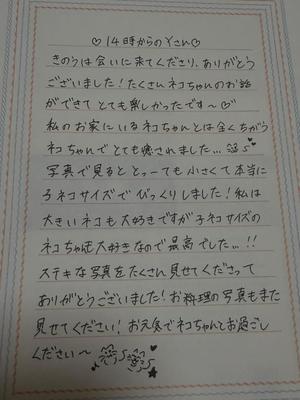 ♡14時からのYさん♡
きのうは会いに来てくださり、ありがとう
ございました！たくさんネコちゃんのお話
ができてとても楽しかったです〜♡
私のお家にいるネコちゃんとは全くちがう
ネコちゃんでとても癒されました…
写真で見るととっーても小さくて本当に
子ネコサイズでびっくりしました！私は
大きいネコも大好きですが子ネコサイズの
ネコちゃんも大好きなので最高でした…!!
ステキな写真をたくさん見せてくださって
ありがとうございました！お料理の写真もまた
見せてください！お元気でネコちゃんとお過ごし
ください〜